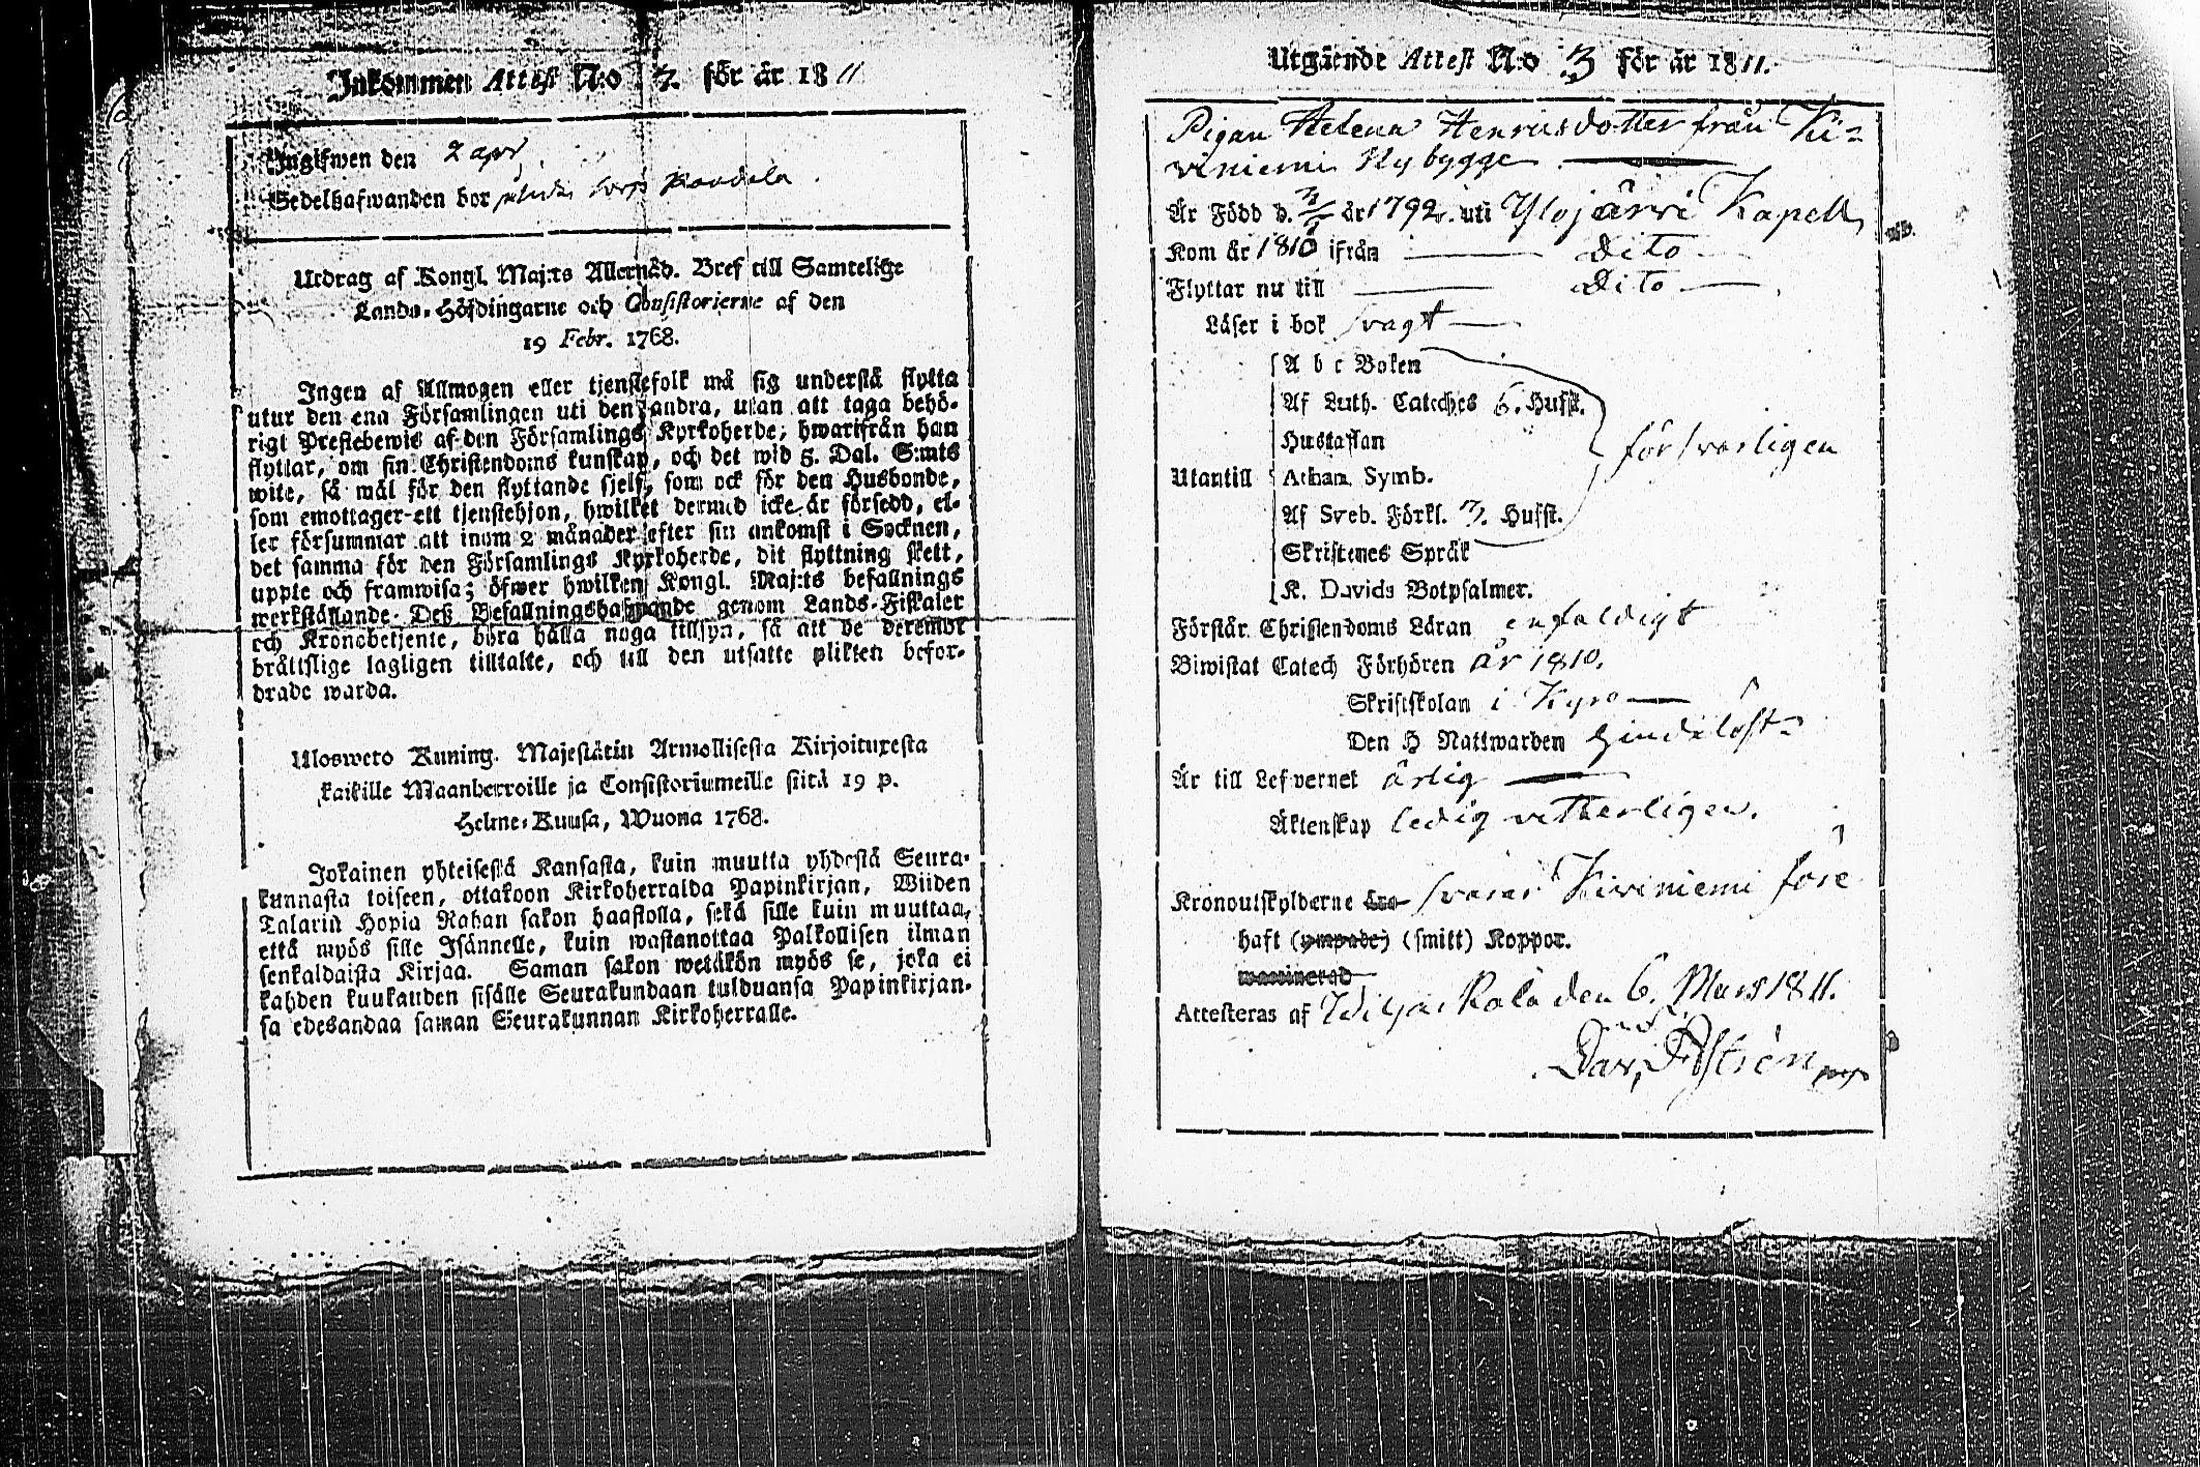 Inkommen Attest N:o 7. för år 1811
Ingifwen den 2 apr.
Sedelhafwanden bor
Utdrag af Kongl. Maj:ts Allernåd. Bref till Samtelige
Lands-Höfdingarne och Consistorierne af den
19 Febr. 1768.
Ingen af Allmogen eller tjenstefolk må sig understå flytta
utur den ena Församlingen uti den andra, utan att taga behö-
rigt Prestebewis af den Församlings Kyrkoherde, hwarifrån han
flyttar, om sin Christendoms kunskap, och det wid 5. Dal. S:mts
wite, så wäl för den flyttande sjelf, som ock för den Husbonde,
som emottager ett tjenstehjon, hwilket dermed icke är försedd, el-
ler försummar att inom 2 månader efter sin ankomst i Socknen,
det samma för den Församlings Kyrkoherde, dit flyttning skett,
uppte och framwisa; öfwer hwilken Kongl. Maj:ts befallnings
werkställande Deß Befallningshafwande genom Lands-Fiskaler
och Kronobetjente, böra hålla noga tillsyn, så att de deremot
bråttslige lagligen tilltalte, och till den utsatte plikten befor-
drade warda.
Ulosweto Kuning. Majestätin Armollisesta Kirjoituxesta
kaikille Maanherroille ja Consistoriumeille siitä 19 p.
Helme-Kuusa, Wuona 1768.
Jokainen yhteisestä Kansasta, kuin muutta yhdestä Seura-
kunnasta toiseen, ottakoon Kirkoherralda Papinkirjan, Wiiden
Talarin Hopia Rahan sakon haastolla, sekä sille kuin muuttaa,
että myös sille Isännelle, kuin wastanottaa Palkollisen ilman
senkaldaista Kirjaa. Saman sakon wetäkön myös se, joka ei
kahden kuukauden sisälle Seurakundaan tulduansa Papinkirjan-
sa edesandaa saman Seurakunnan Kirkoherralle.
Utgående Attest N:o 3 för år 1811.
Pigan Helena Henricsdotter från Ki-
viniemi Nybygge
Är Född d. år 1792. uti Ylojärvi Kapell
Kom år 1810 ifrån dito
Flyttar nu till Dito
Läser i bok svagt
A b c Boken
Af Luth. Cateches 6. Hufst.
Hustaflan
försvarligen
Utantill Athan. Symb.
Af Sveb. Förkl. 7. Hufst.
Skriftenes Språk
K. Davids Botpsalmer.
Förstår Christendoms Läran enfaldigt
Biwistat Catech Förhören år 1810.
Skriftskolan i Kyro
Den H Nattwarden
Är till Lefvernet ärlig
Äktenskap ledig vetterligen.
Kronoutskylderne äro svarar Kiviniemi före
haft (ympade) (smitt) Koppor.
waccinerad
Attesteras af den 6. Mars 1811.
Dav,